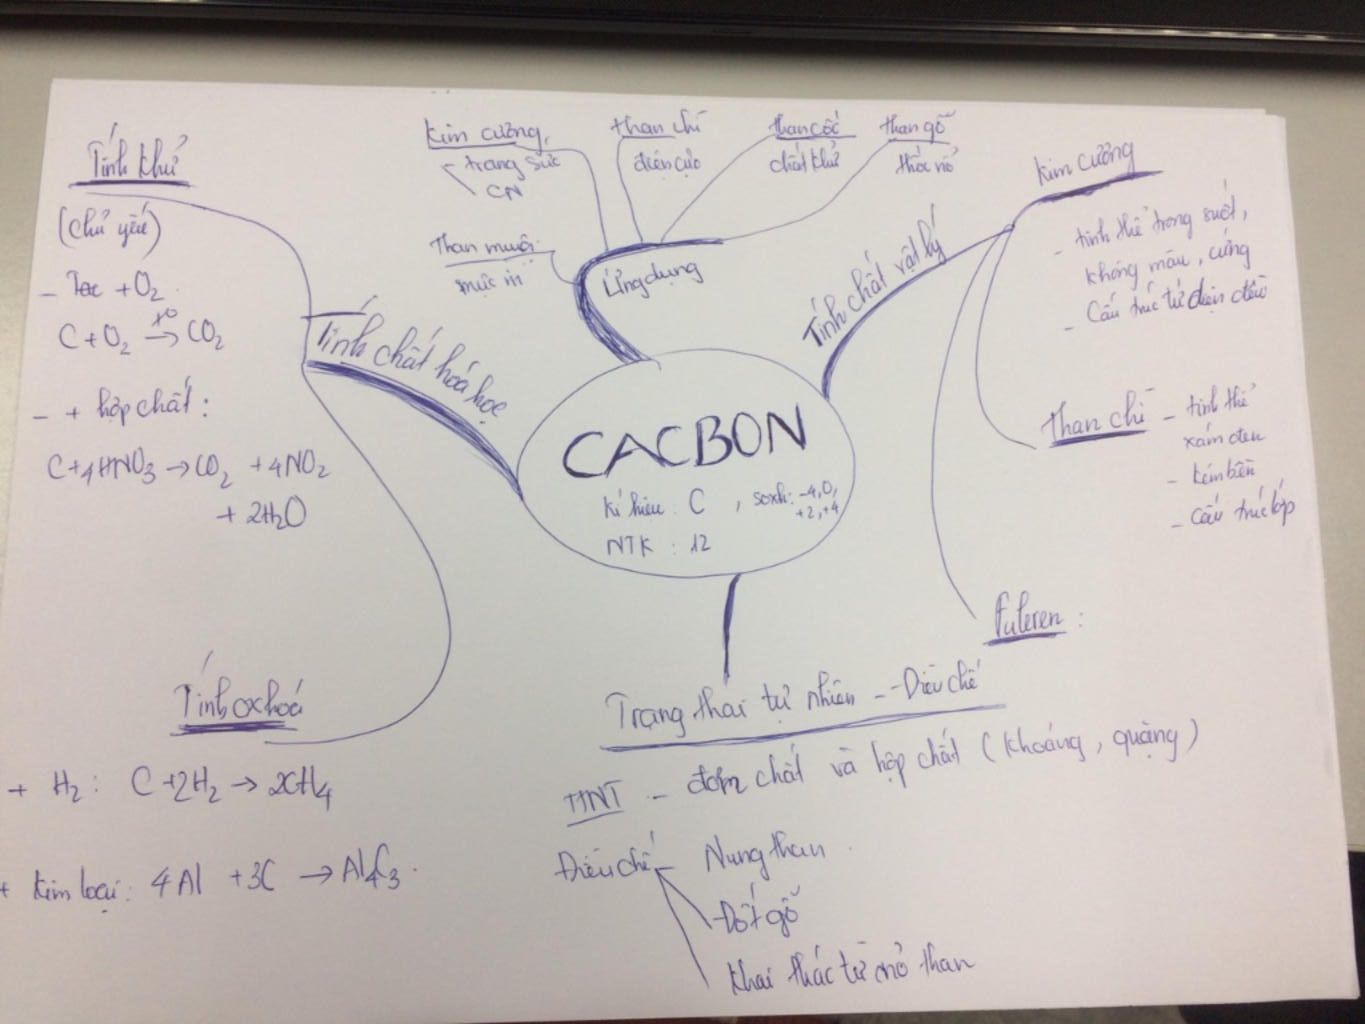 CACBON
kí hiệu : C , soxh: -4, 0,
+2, +4
NTK : 12
Ứng dụng
Kim cương
- trang sức
CN
than chì
điện cực
than cốc
chất khử
than gỗ
thốc nổ
Than muội
mực in
Tính chất vật lý
Kim cương
- tinh thể trong suốt,
không màu, cứng
- Cấu trúc tứ diện đều
Than chì - tinh thể
xám đen
- kém bền
- Cấu trúc lớp
Fuleren :
Trạng thái tự nhiên - Điều chế
TTNT - đơn chất và hợp chất (khoáng, quặng)
Điều chế - Nung than
- Đốt gỗ
Khai thác từ mỏ than
Tính chất hoá học
Tính khử
(Chủ yếu)
- + O2
C + O2 →t° CO2
- + hợp chất :
C + 4HNO3 → CO2 + 4NO2
+ 2H2O
Tính oxhoá
+ H2 : C + 2H2 → 2CH4
+ Kim loại: 4Al + 3C → Al4C3